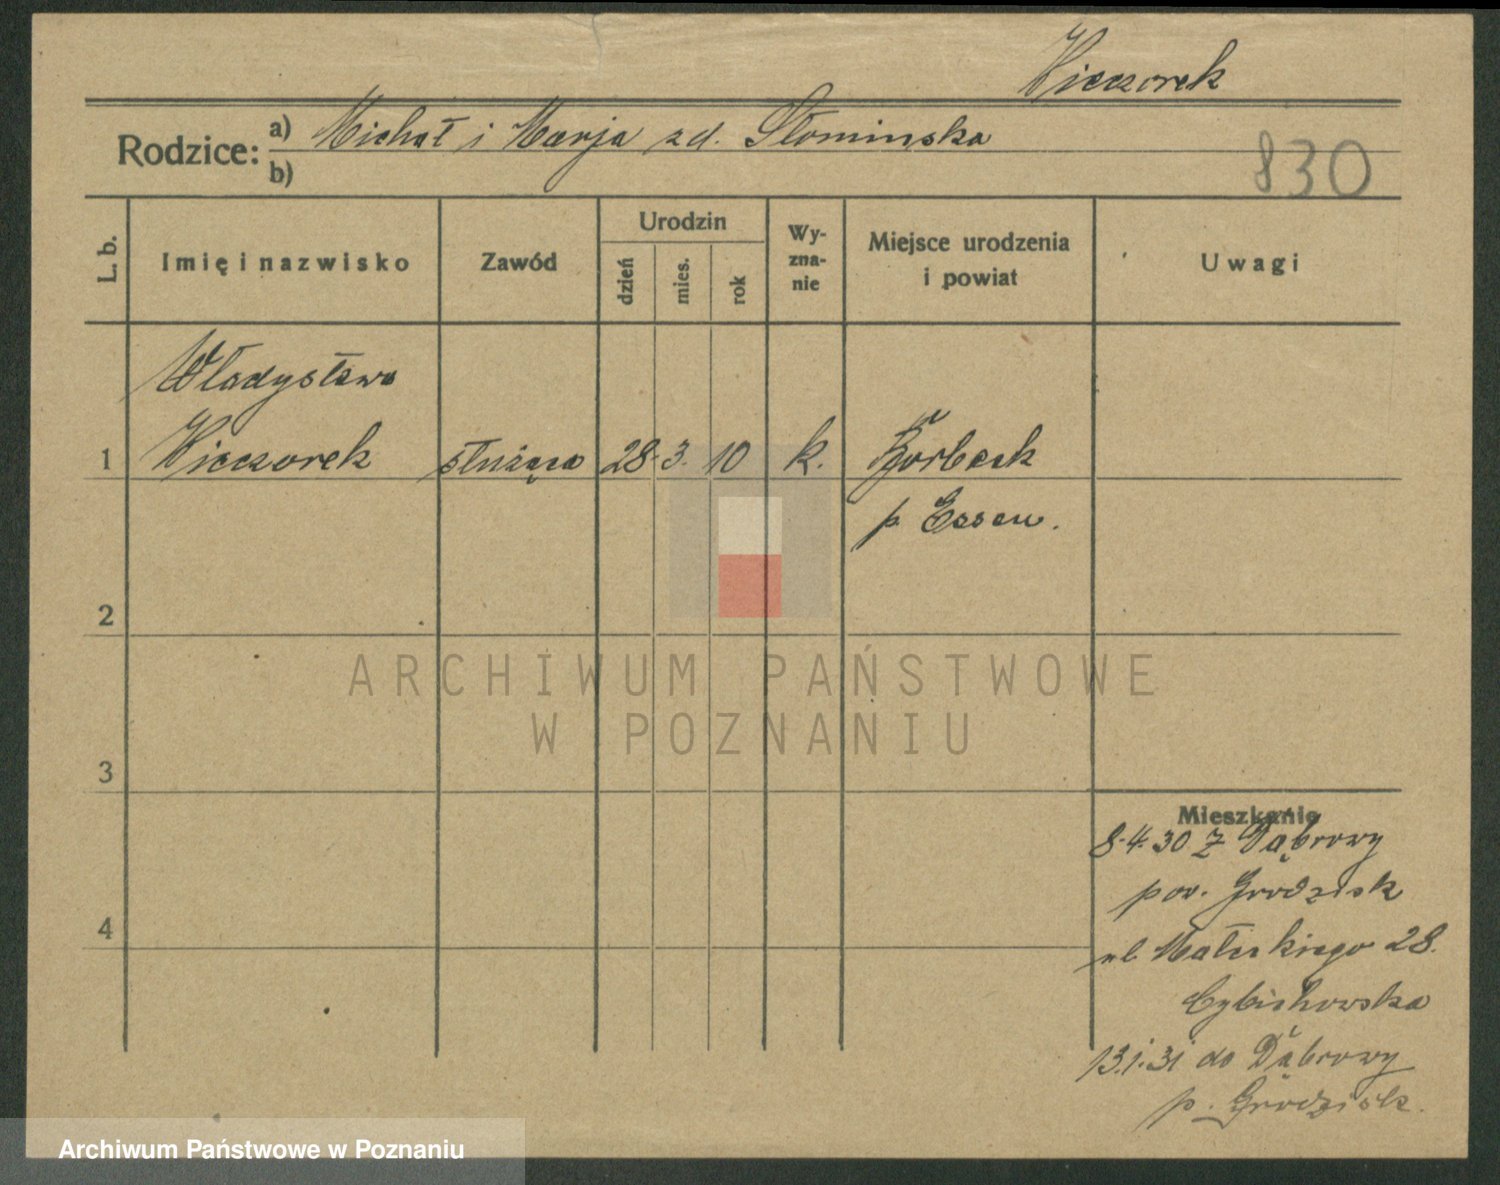 Wieczorek
Rodzice: a) Michał i Marja zd. Słominska
b)
830
L. b.
Imię i nazwisko
Zawód
Urodzin
dzień
mies.
rok
Wy-
zna-
nie
Miejsce urodzenia
i powiat
Uwagi
Władysława
1 Wieczorek służąca 28. 3. 10 k. Borbeck
p. Essen.
2
3
4
Mieszkanie
8.4.30 z Dąbrowy
pow. Grodzisk
ul Małeckiego 28.
Cybichowska
13.1.31 do Dąbrowy
p. Grodzisk.
ARCHIWUM PAŃSTWOWE
W POZNANIU
Archiwum Państwowe w Poznaniu